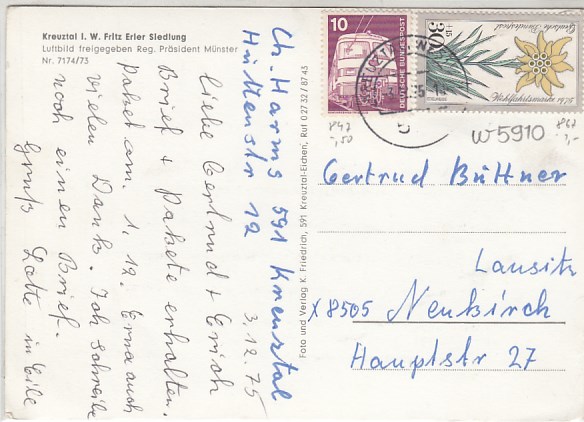 Kreuztal i. W. Fritz Erler Siedlung
Luftbild freigegeben Reg. Präsident Münster
Nr. 7174/73
Ch. Harms 591 Kreuztal
Hüttenstr 12
3.12.75
Liebe Gertrud + Erich
Brief + Pakete erhalten.
Paket am 1.12. Erna auch
vielen Dank. Ich schreibe
noch einen Brief.
Gruß Lotte in Eile
Foto und Verlag K. Friedrich, 591 Kreuztal-Eichen, Ruf 0 27 32 / 87 45
10
DEUTSCHE BUNDESPOST
30
+15
Deutsche Bundespost
Wohlfahrtsmarke 1975
W5910
Gertrud Büttner
Lausitz
X8505 Neukirch
Hauptstr 27